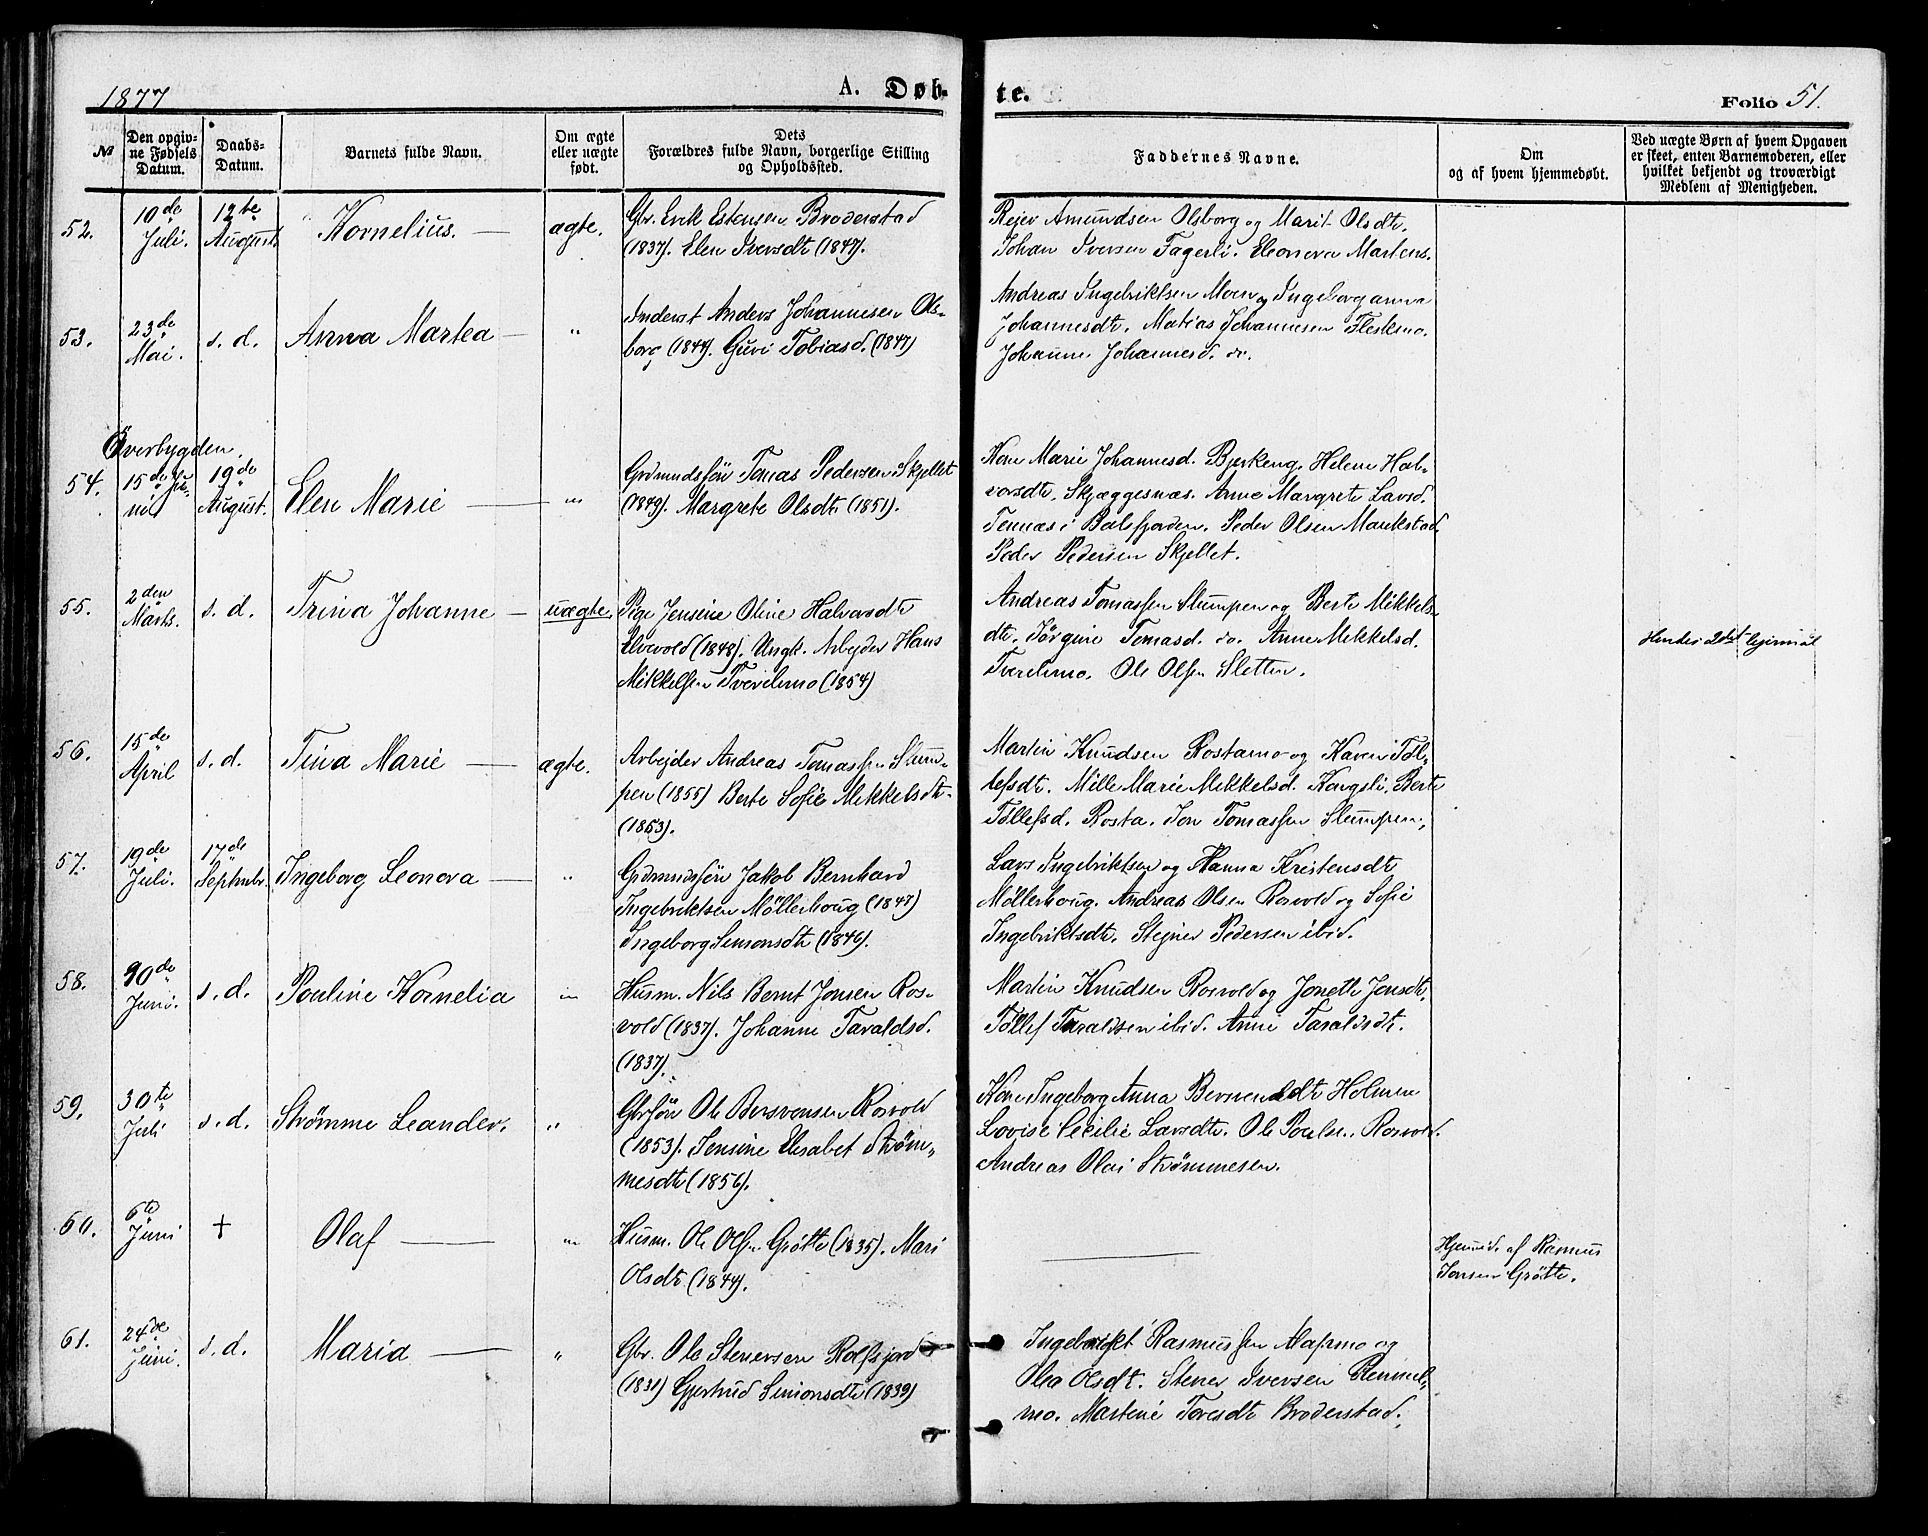 1877
A. Døb-
te.
Folio 51.
№
Den opgiv-
ne Fødsels
Datum.
Daabs-
Datum.
Barnets fulde Navn.
Om ægte
eller uægte
født.
Dets
Forældres fulde Navn, borgerlige Stilling
og Opholdssted.
Faddernes Navne.
Om
og af hvem hjemmedøbt.
Ved uægte Børn af hvem Opgaven
er skeet, enten Barnemoderen, eller
hvilket bekjendt og troværdigt
Medlem af Menigheden.
52.
10de
Juli.
12te
August
Kornelius. —
ægte.
Gbr. Erik Estensen Broderstad
(1837). Elen Iversdt (1847).
Rejer Amundsen Olsborg og Marit Olsdt.
Johan Iversen Fagerli. Eleonora Martens.
53.
23de
Mai.
s. d.
Anna Martea —
"
Inderst Anders Johannesen Ols-
borg (1844). Guri Tobiasd. (1847)
Andreas Ingebriktsen Moen og Ingeborganna
Johannesdt. Matias Johannesen Fleskmo.
Johanne Johannesd. do.
Överbygden.
54.
15de Ju-
ni
19de
August.
Elen Marie —
"
Grdmandsfön Tomas Pedersen Skjellet
(1849). Margrete Olsdt (1851).
Kone Marie Johannesd. Bjerkeng. Helene Hal-
vorsdt. Skjæggesnæs. Anne Margrete Larsd.
Tennæs i Balsfjorden. Peder Olsen Maukstad
Peder Pedersen Skjellet.
55.
2den
Marts.
s. d.
Trina Johanne —
uægte.
Pige Jensine Oline Halvorsdt
Elvevold (1848). Ungk. Arbejder Hans
Mikkelsen Tverelvmo (1854)
Andreas Tomassen Slumpen og Berte Mikkels-
dt. Jörgine Tomasd. do. Anne Mikkelsd.
Tverelvmo. Ole Olsen Sletten.
Hendes 2det lejermål
56.
15de
April
s. d.
Tina Marie —
ægte.
Arbejder Andreas Tomassen Slum-
pen (1855) Berte Sofie Mikkelsdt.
(1853).
Martin Knudsen Rostamo og Karen Töl-
lefsdt. Mille Marie Mikkelsd. Kongsli. Berte
Töllefsd. Rosta. Jon Tomassen Slumpen.
57.
19de
Juli.
17de
Septmbr.
Ingeborg Leonora —
"
Grdmndsfön Jakob Bernhard
Ingebriktsen Möllerhoug (1847)
Ingeborg Simonsdt (1846).
Lars Ingebriktsen og Hanna Kristensdt
Möllerhoug. Andreas Olsen Rosvold og Sofie
Ingebriktsdt. Stejner Pedersen ibid.
58.
20de
Juni.
s. d.
Pouline Kornelia
"
Husm. Nils Bernt Jonsen Ros-
vold (1837). Johanne Taraldsd.
(1837).
Martin Knudsen Rosvold og Jonette Jonsdt.
Töllef Taraldsen ibid. Anne Taraldsdt.
59.
30te
Juli
s. d.
Strømme Leander.
"
Gbrfön Ole Bersvensen Rosvold
(1853). Jensine Elesabet Strøm-
mesdt (1856).
Kone Ingeborg Anna Bersvendsdt Holmen
Lovise Cecilie Larsdt. Ole Poulsen Rosvold.
Andreas Olai Strömmesen.
60.
6te
Juni
+
Olaf —
"
Husm. Ole Olsen Grötte (1835). Mari
Olsdt (1844).
—
Hjemmd. af Rasmus
Jonsen Grötte.
61.
24de
Juni.
s. d.
Maria —
"
Gbr. Ole Stenersen Rolfsjord
(1831) Gjertrud Simonsdt (1839)
Ingebrigt Rasmussen Alapmo og
Olea Olsdt. Stener Iversen Remmel-
mo. Martine Toresdt Broderstad.